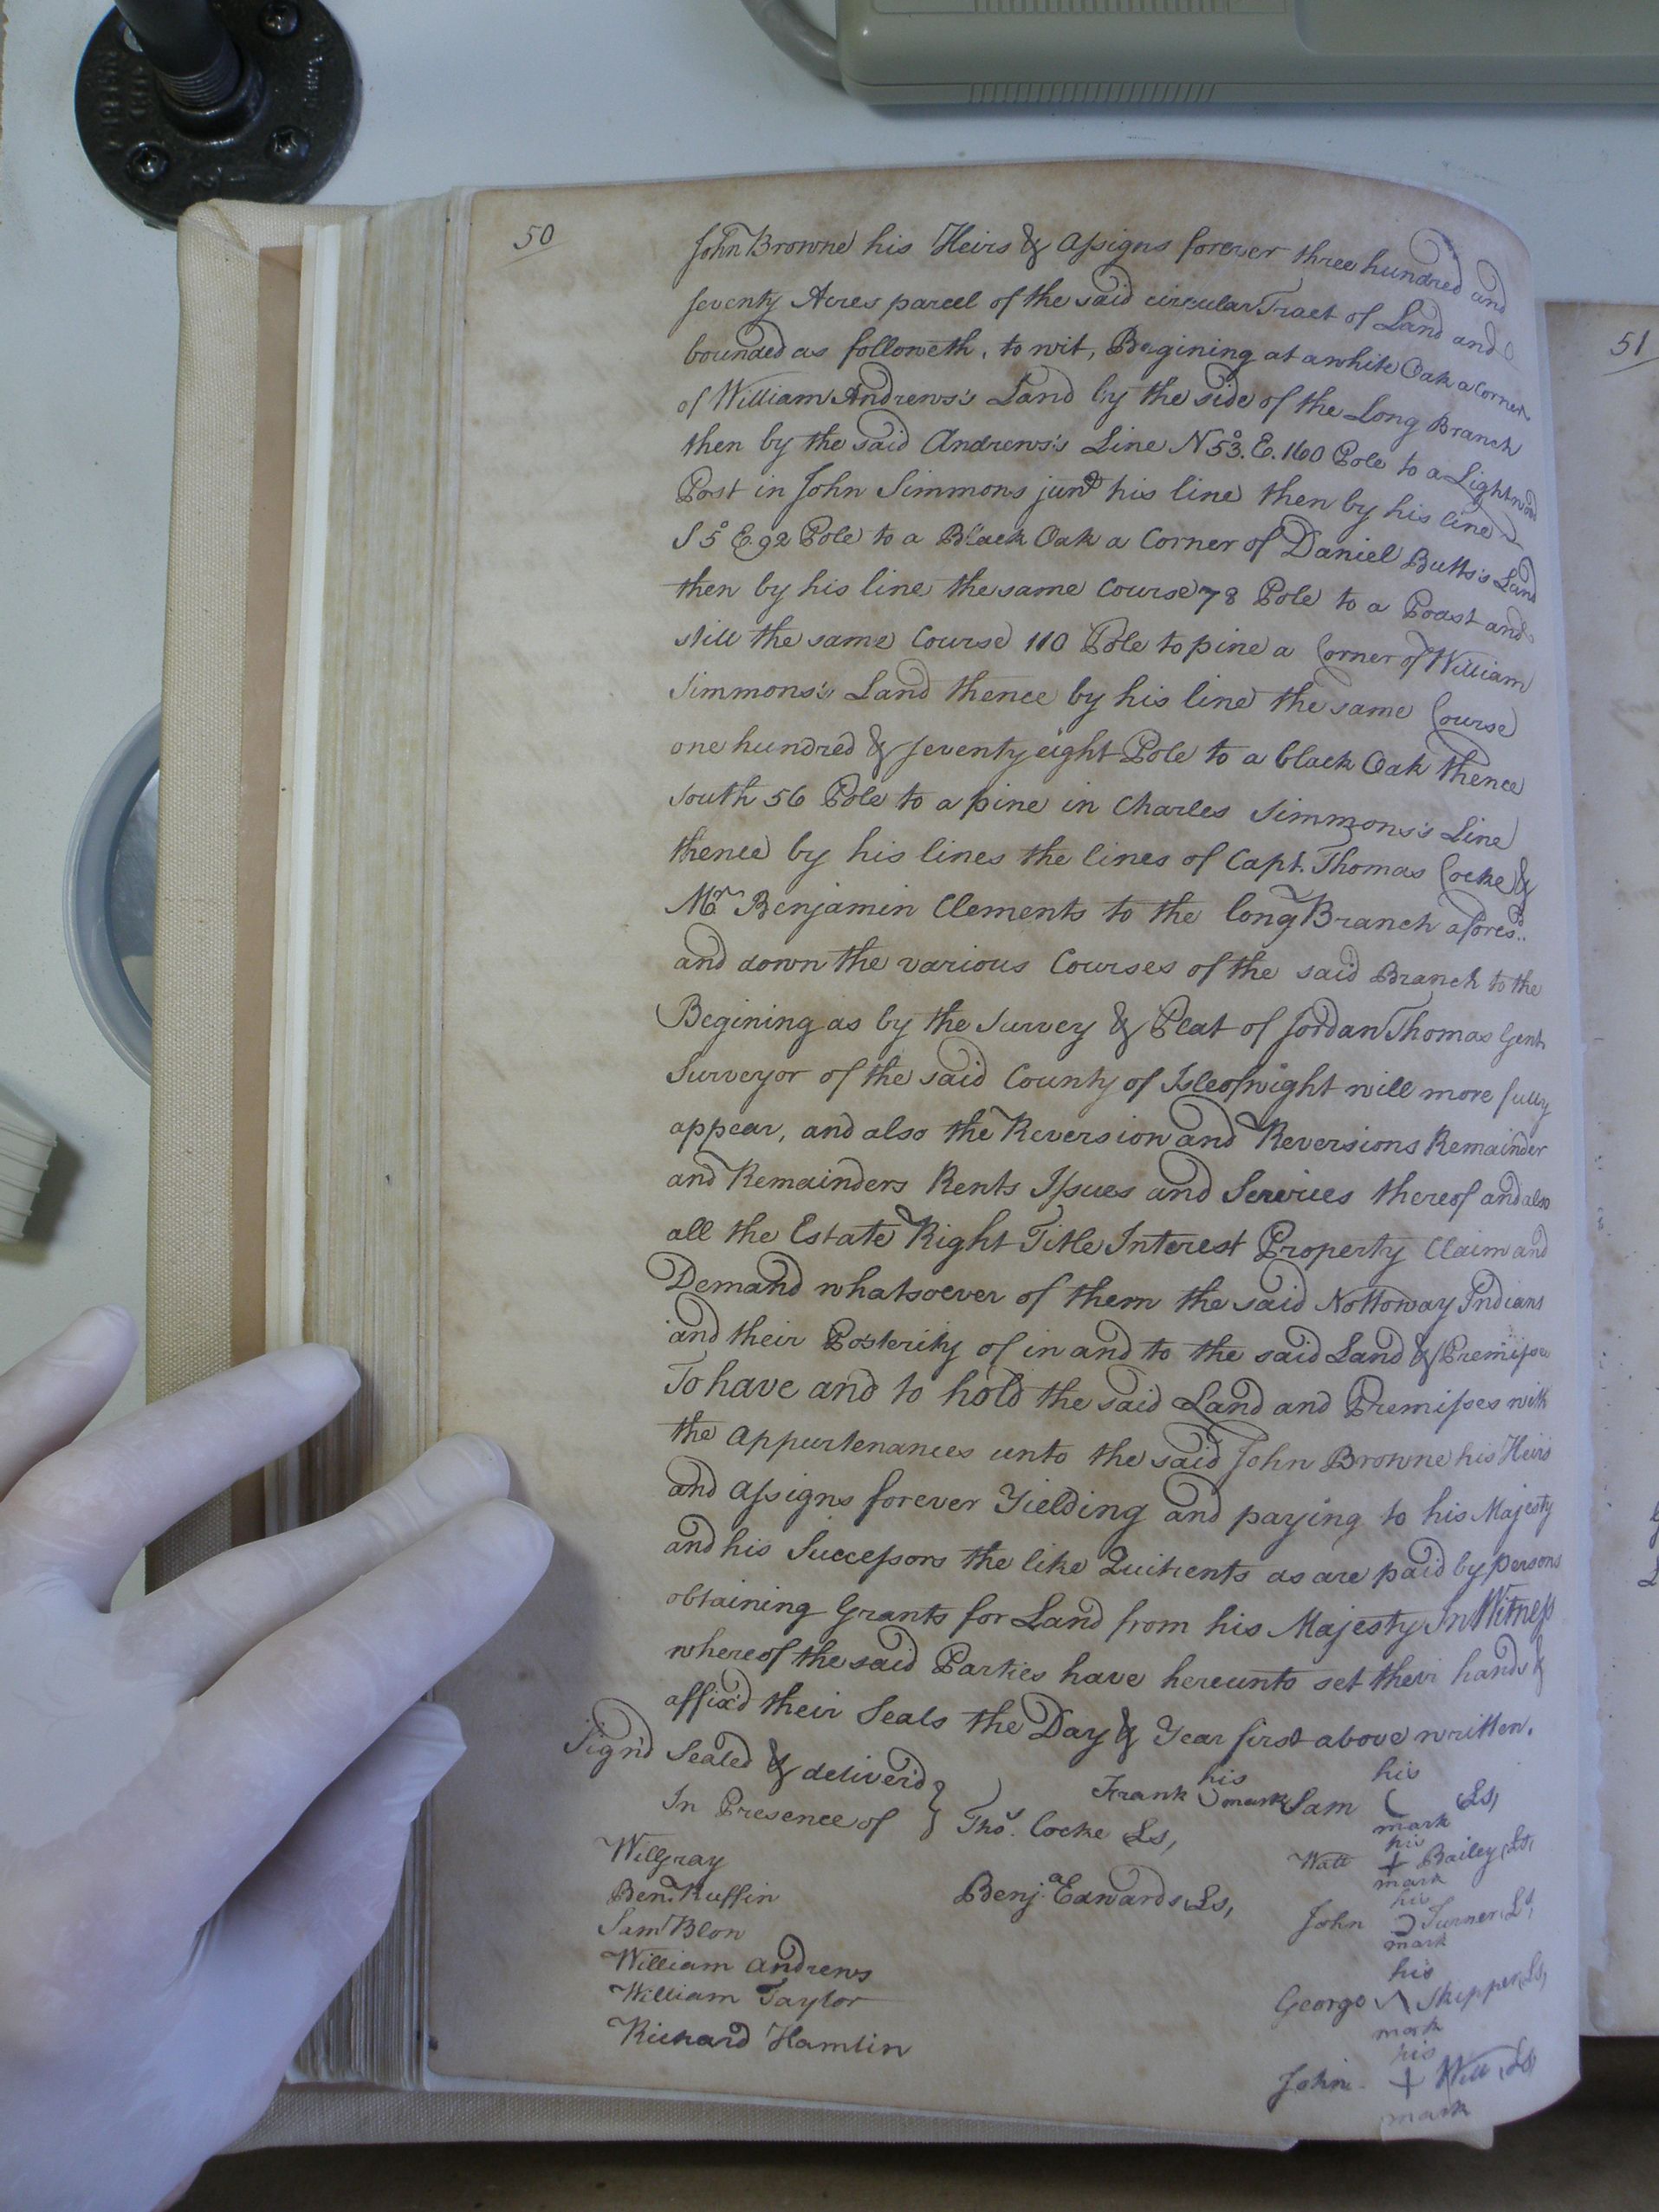 50
John Browne his Heirs & Assigns forever three hundred and
seventy Acres parcel of the said circular Tract of Land and
bounded as followeth, to wit, Begining at a white Oak a Corner
of William Andrews's Land by the side of the Long Branch
then by the said Andrews's Line N 53.° E. 160 Pole to a Lightwood
Post in John Simmons junr his line then by his line
S 5° E 92 Pole to a Black Oak a Corner of Daniel Butts's Land
then by his line the same Course 78 Pole to a Poast and
still the same Course 110 Pole to pine a Corner of William
Simmons's Land thence by his line the same Course
one hundred & seventy eight Pole to a black Oak thence
South 56 Pole to a pine in Charles Simmons's Line
thence by his lines the lines of Capt. Thomas Cocke &
Mr Benjamin Clements to the long Branch afores.d
and down the various Courses of the said Branch to the
Begining as by the Survey & Plat of Jordan Thomas Gent.
Surveyor of the said County of Isleofwight will more fully
appear, and also the Reversion and Reversions Remainder
and Remainders Rents Issues and Services thereof and also
all the Estate Right Title Interest Property Claim and
Demand whatsoever of them the said Nottoway Indians
and their Posterity of in and to the said Land & Premises
To have and to hold the said Land and Premisses with
the Appurtenances unto the said John Browne his Heirs
and Assigns forever Yielding and paying to his Majesty
and his Successors the like Quitrents as are paid by persons
obtaining Grants for Land from his Majesty In Witness
whereof the said Parties have hereunto set their hands &
affix'd their Seals the Day & Year first above written.
Sign'd Sealed & deliver'd
In Presence of
Will Gray
Ben. Ruffin
Sam Blow
William Andrews
William Taylor
Richard Hamlin
Tho.s Cocke Ls,
Benj.a Edwards Ls,
his
Frank mark
his
Sam Ls,
mark
his
Watt + Bailey Ls,
mark
his
John Turner Ls,
mark
his
George Skipper Ls,
mark
his
John + Will Ls,
mark
51